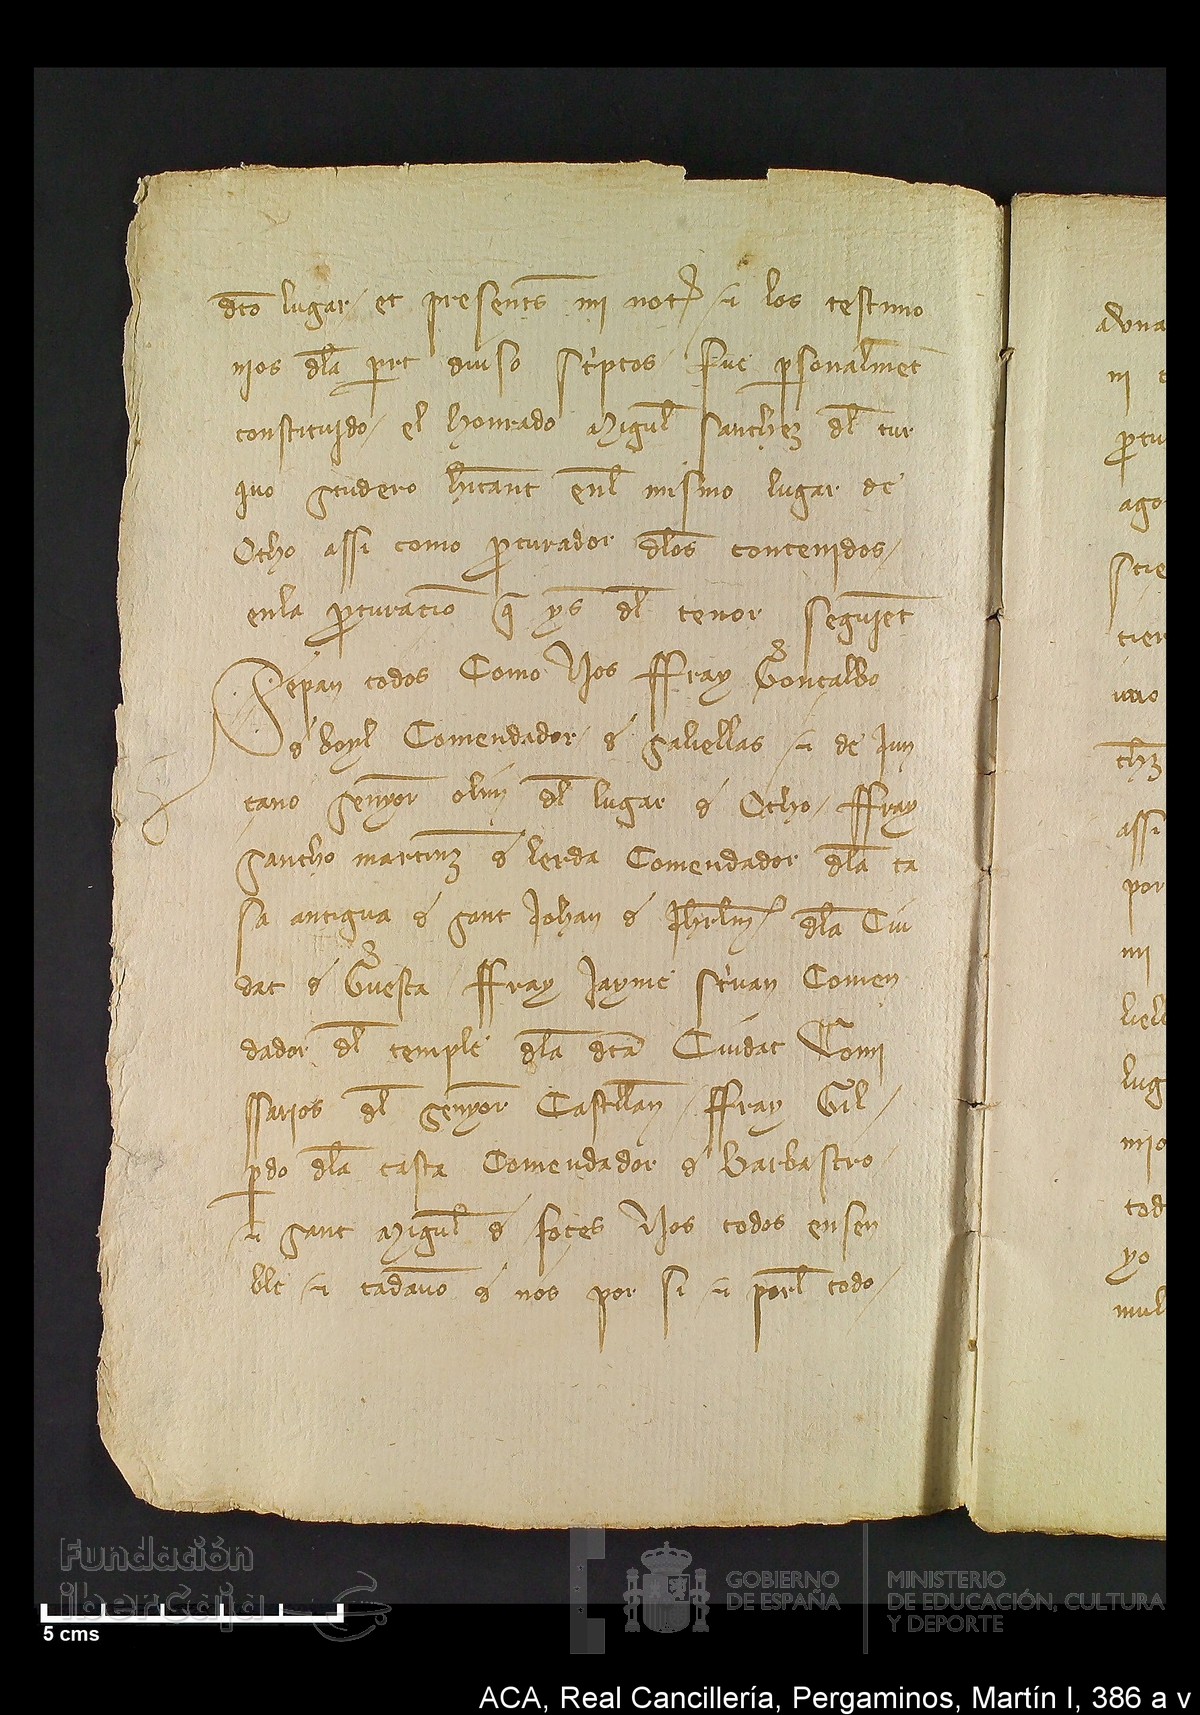 dco lugar / et presents mi not / τ los testimo
nios dla part diuso scriptos / fue personalment
constituydo / el honrado Miguel Sanchez dl tur
quo scudero hitant enl mismo lugar de
Otho assi como procurador dlos contenidos /
enla procuracion q ys dl tenor seguient
Sepan todos Como Nos ffray Goncalbo
d boyl Comendador / d galiellas τ de Jun
cano senyor olim dl lugar d Otho / ffray
sancho martinz d lerda Comendador dla ca
sa antigua d sant Johan d Jhrlm dla Ciu
dat d Guesca / ffray Jayme Scivan Comen
dador dl temple dla dca Ciudat Comi
ssarios dl senyor Castellan / ffray Gil /
pdo dla casta Comendador d Barbastro /
τ sant Miguel d foces Nos todos ensen
ble τ cadauno d nos por si τ porl todo /
aduna
ni
procu
ago
scie
tier
uno
chz
assi
por
mi
lug
nio
tod
yo
mul
Fundación
ibercaja
5 cms
GOBIERNO
DE ESPAÑA
MINISTERIO
DE EDUCACIÓN, CULTURA
Y DEPORTE
ACA, Real Cancillería, Pergaminos, Martín I, 386 a v